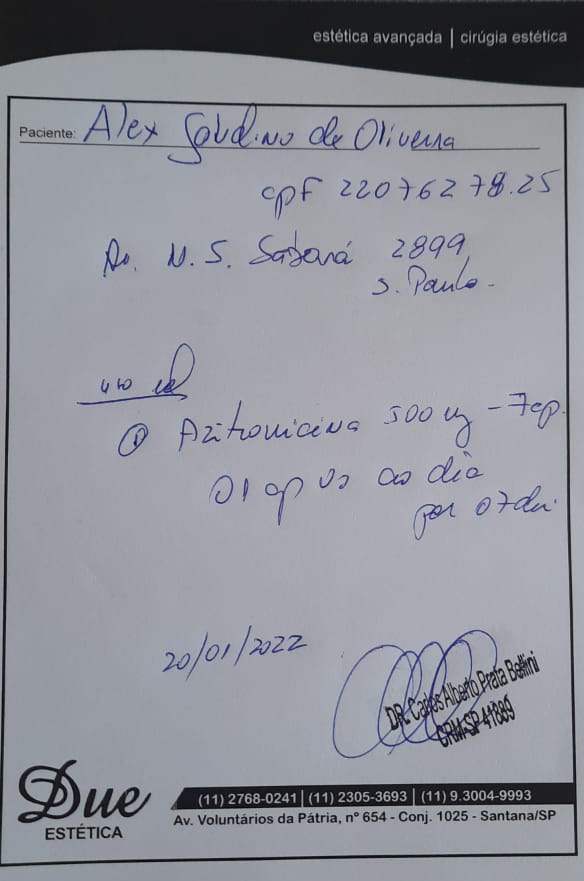 estética avançada | cirúgia estética
Paciente: Alex Galdino de Oliveira
cpf 220762 78.25
Av. N. S. Sabará 2899
S. Paulo.
uso oral
① Azitromicina 500 mg - 7cp.
01 cp vo ao dia
por 07 di
20/01/2022
DR. Carlos Alberto Prata Bellini
CRM-SP 41889
Due
ESTÉTICA
(11) 2768-0241 | (11) 2305-3693 | (11) 9.3004-9993
Av. Voluntários da Pátria, nº 654 - Conj. 1025 - Santana/SP